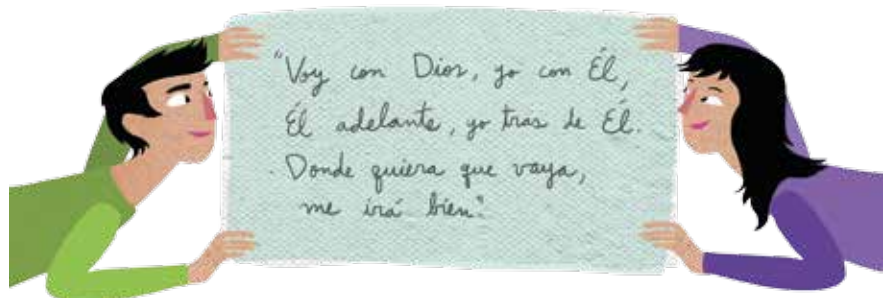 "Voy con Dios, yo con Él,
Él adelante, yo tras de Él.
Donde quiera que vaya,
me irá bien."